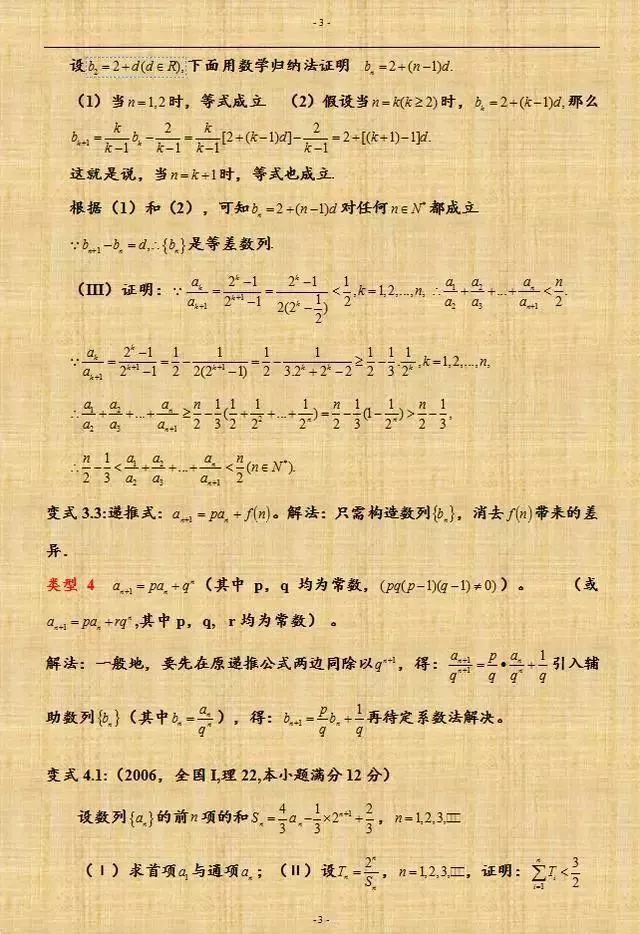 - 3 -
设b₂=2+d(d∈R),下面用数学归纳法证明 bₙ=2+(n-1)d.
(1)当n=1,2时,等式成立 (2)假设当n=k(k≥2)时,bₖ=2+(k-1)d,那么
bₖ₊₁=\frac{k}{k-1}bₖ-\frac{2}{k-1}=\frac{k}{k-1}[2+(k-1)d]-\frac{2}{k-1}=2+[(k+1)-1]d.
这就是说,当n=k+1时,等式也成立.
根据(1)和(2),可知bₙ=2+(n-1)d对任何n∈N*都成立
∵bₙ₊₁-bₙ=d,∴{bₙ}是等差数列.
(III)证明:∵\frac{aₖ}{aₖ₊₁}=\frac{2^k-1}{2^{k+1}-1}=\frac{2^k-1}{2(2^k-\frac{1}{2})}<\frac{1}{2},k=1,2,...,n, ∴\frac{a₁}{a₂}+\frac{a₂}{a₃}+...+\frac{aₙ}{aₙ₊₁}<\frac{n}{2}.
∵\frac{aₖ}{aₖ₊₁}=\frac{2^k-1}{2^{k+1}-1}=\frac{1}{2}-\frac{1}{2(2^{k+1}-1)}=\frac{1}{2}-\frac{1}{3.2^k+2^k-2}≥\frac{1}{2}-\frac{1}{3}.\frac{1}{2^k},k=1,2,...,n,
∴\frac{a₁}{a₂}+\frac{a₂}{a₃}+...+\frac{aₙ}{aₙ₊₁}≥\frac{n}{2}-\frac{1}{3}(\frac{1}{2}+\frac{1}{2^2}+...+\frac{1}{2^n})=\frac{n}{2}-\frac{1}{3}(1-\frac{1}{2^n})>\frac{n}{2}-\frac{1}{3},
∴\frac{n}{2}-\frac{1}{3}<\frac{a₁}{a₂}+\frac{a₂}{a₃}+...+\frac{aₙ}{aₙ₊₁}<\frac{n}{2}(n∈N*).
变式 3.3:递推式:aₙ₊₁=paₙ+f(n)。解法:只需构造数列{bₙ},消去f(n)带来的差
异.
类型 4 aₙ₊₁=paₙ+qⁿ(其中 p,q 均为常数,(pq(p-1)(q-1)≠0))。 (或
aₙ₊₁=paₙ+rqⁿ,其中 p,q, r 均为常数) 。
解法:一般地,要先在原递推公式两边同除以q^{n+1},得:\frac{aₙ₊₁}{q^{n+1}}=\frac{p}{q}•\frac{aₙ}{q^n}+\frac{1}{q}引入辅
助数列{bₙ}(其中bₙ=\frac{aₙ}{q^n}),得:bₙ₊₁=\frac{p}{q}bₙ+\frac{1}{q}再待定系数法解决。
变式 4.1:(2006,全国 I,理 22,本小题满分 12 分)
设数列{aₙ}的前n项的和Sₙ=\frac{4}{3}aₙ-\frac{1}{3}×2^{n+1}+\frac{2}{3},n=1,2,3,□□
(Ⅰ)求首项a₁与通项aₙ;(II)设Tₙ=\frac{2^n}{Sₙ},n=1,2,3,□□,证明:\sum_{i=1}^{n}Tᵢ<\frac{3}{2}
- 3 -